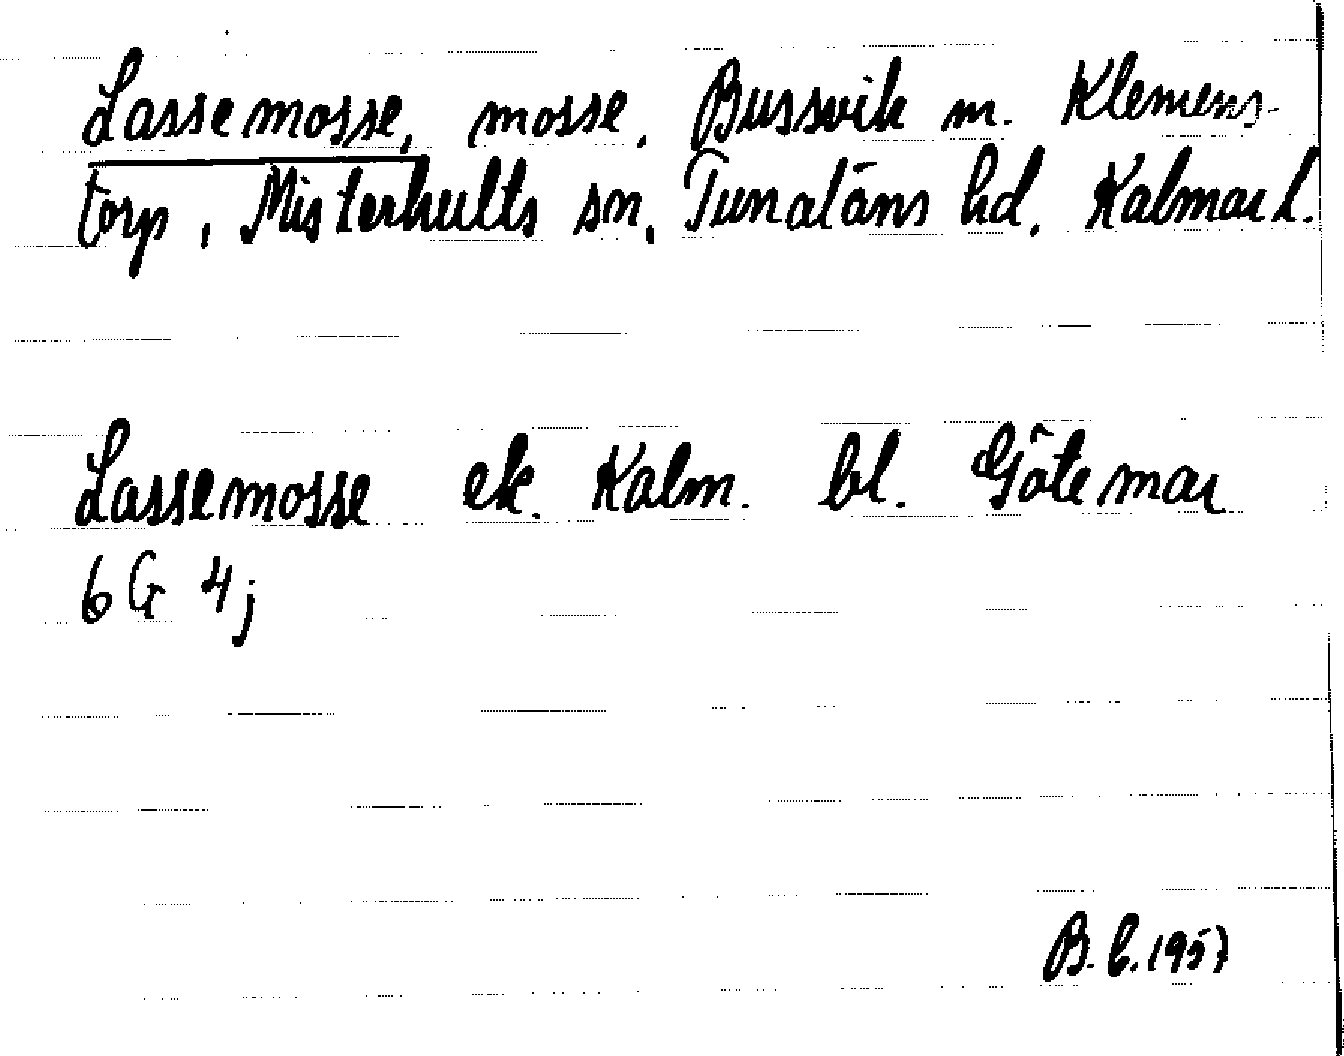 Lassemosse, mosse, Bussvik m. Klemens-
torp, Misterhults sn, Tunaläns hd, Kalmar l.
Lassemosse ek. Kalm. bl. Götemar
6G 4j
B.C. 1957